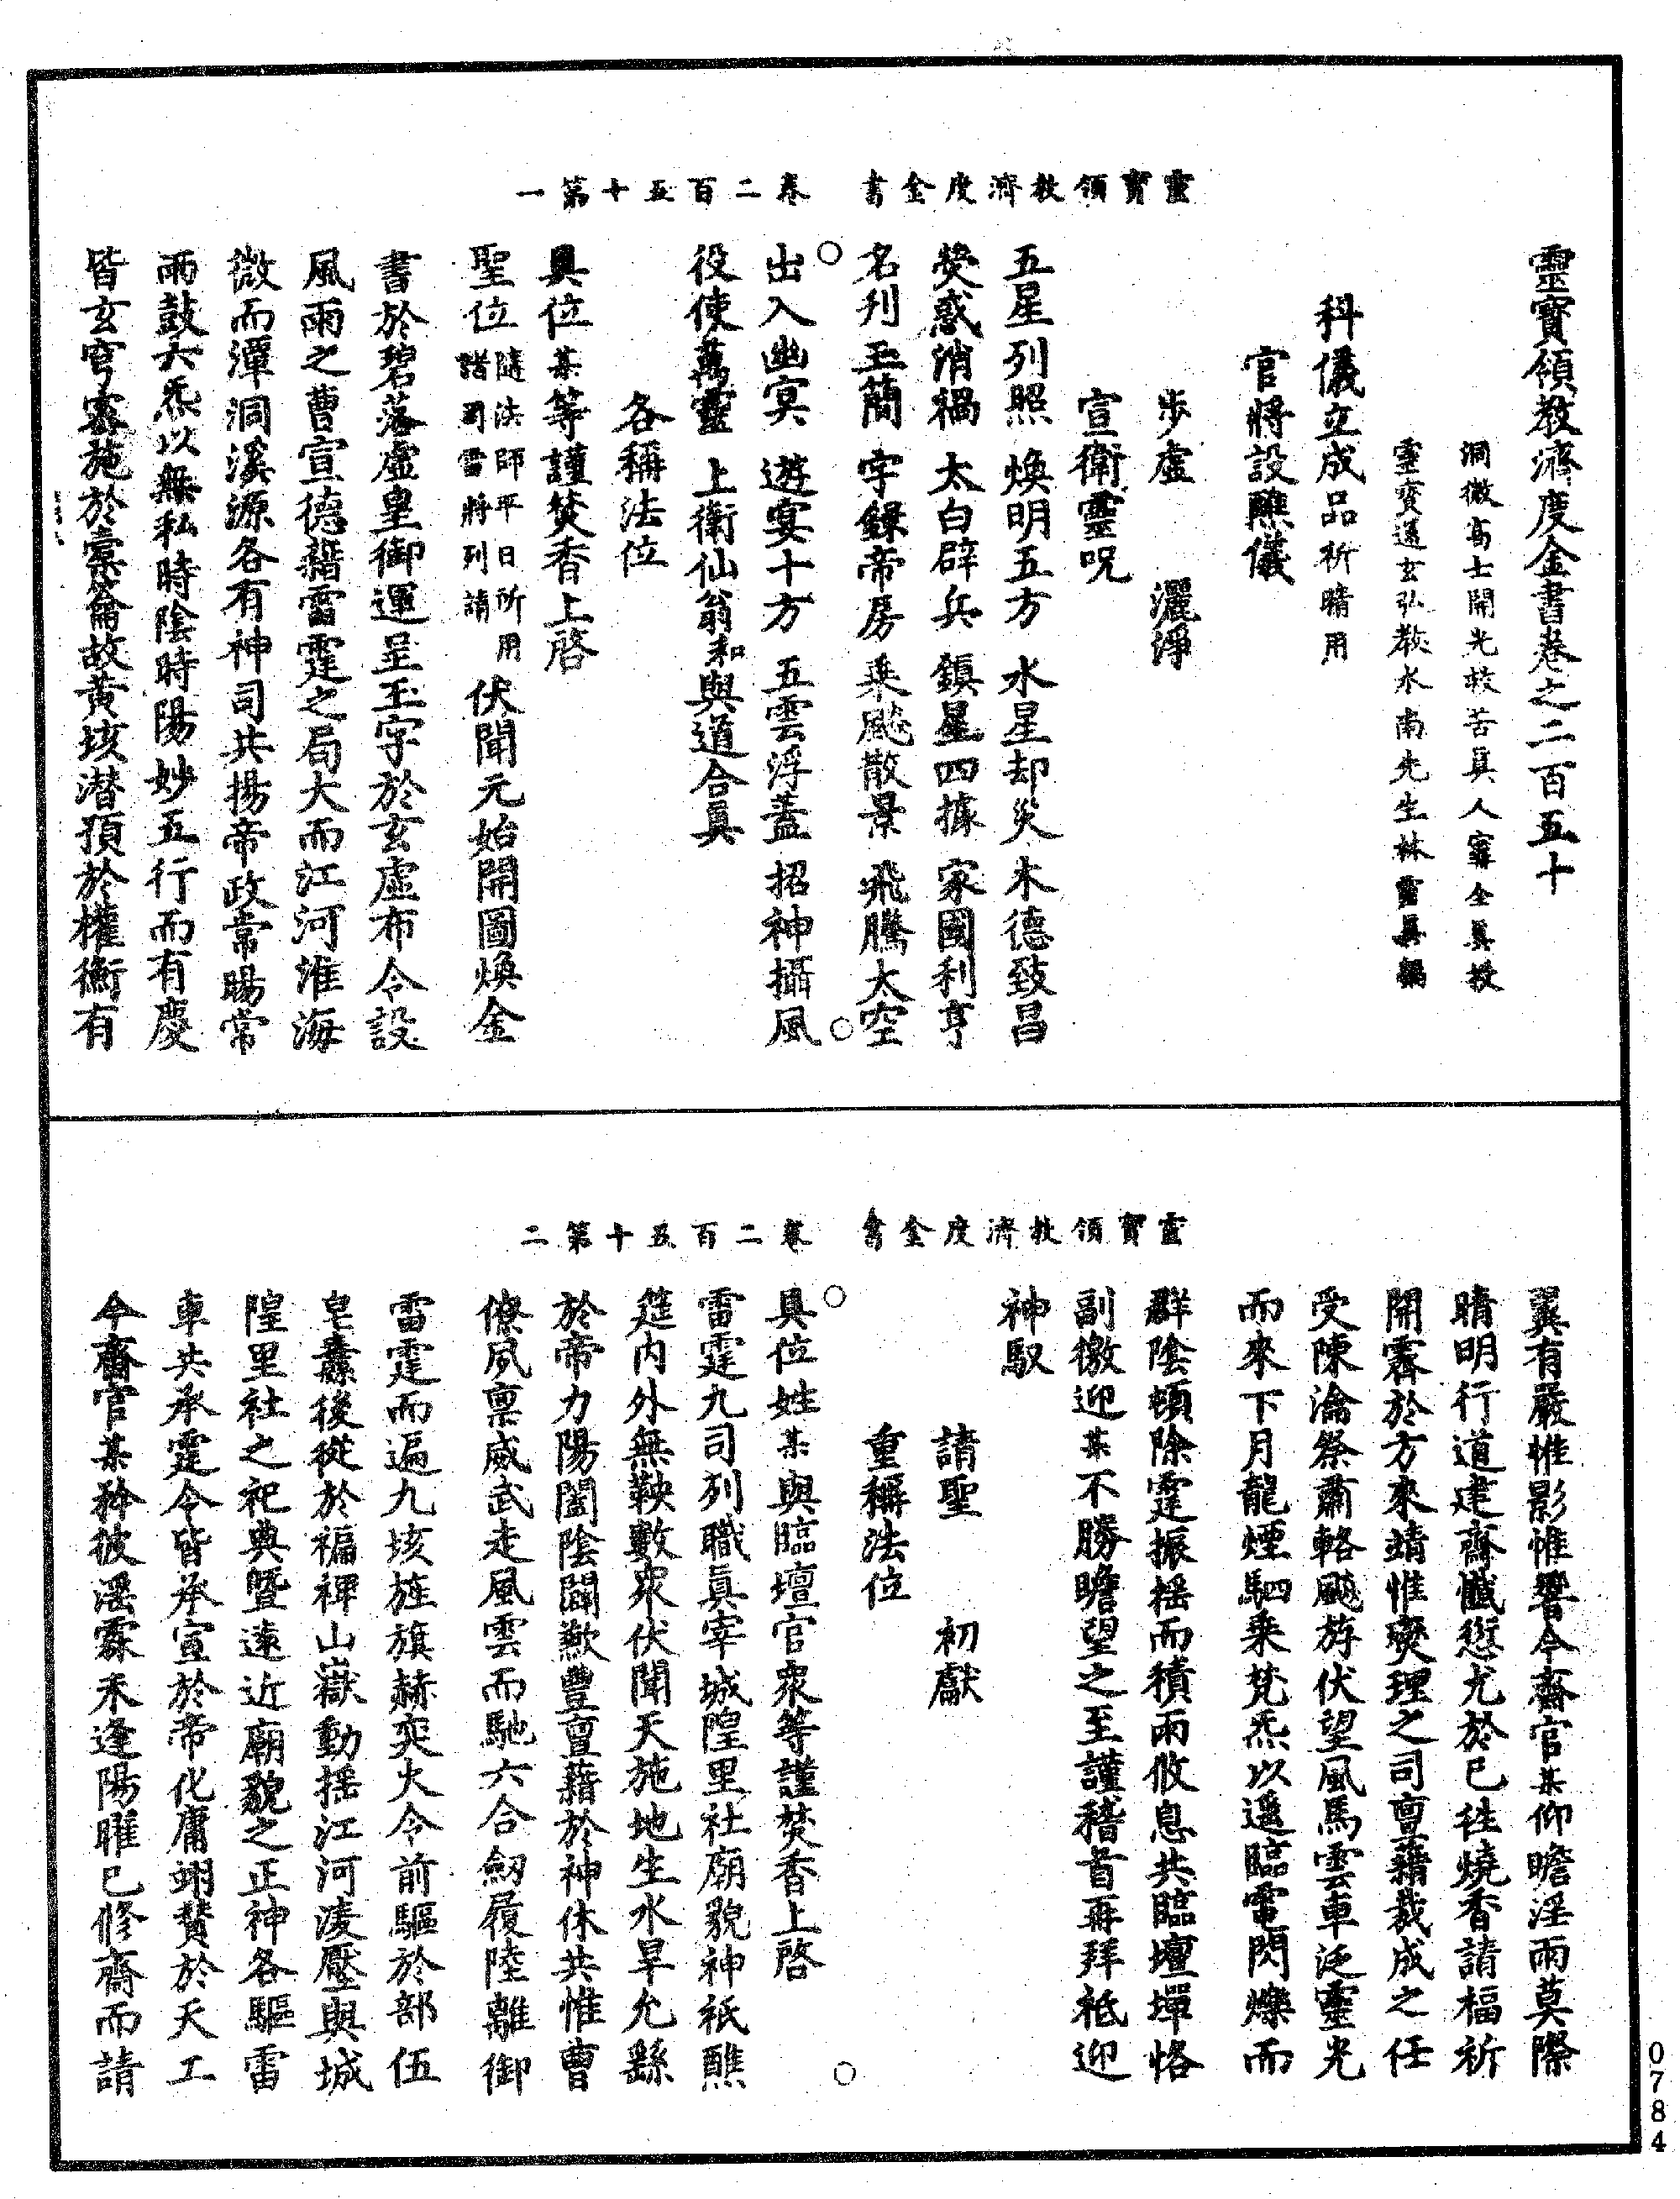 靈寶領教濟度金書卷之二百五十
洞微高士開光救苦真人甯全真授
靈寶通玄弘教水南先生林靈真編
科儀立成品祈晴用
官將設醮儀
步虛　灑淨
宣衛靈呪
五星列照　煥明五方　水星却災　木德致昌
熒惑消禍　太白辟兵　鎮星四據　家國利亨
名列玉簡　字錄帝房　乘飈散景　飛騰太空
出入幽冥　遊宴十方　五雲浮蓋　招神攝風
役使萬靈　上衛仙翁和與道合眞
各稱法位
具位某等謹焚香上啓
聖位隨法師平日所用諸司雷將列請伏聞元始開圖煥金
書於碧落虛皇御運呈玉字於玄虛布令設
風雨之曹宣德藉雷霆之局大而江河淮海
微而潭洞溪源各有神司共揚帝政常暘常
雨鼓六炁以無私時陰時陽妙五行而有慶
皆玄穹密施於橐籥故黄垓潜頂於權衡有
靈寶領教濟度金書　卷二百五十第一
翼有嚴惟影惟響今齋官某仰瞻淫雨莫際
晴明行道建齋懺愆尤於已往燒香請福祈
開霽於方來靖惟燮理之司亶藉裁成之任
受陳瀹祭肅輅飈斿伏望風馬雲車泛靈光
而來下月龍煙駟乘梵炁以遥臨電閃爍而
群陰頓除霆振揺而積雨收息共臨壇墠恪
副徼迎某不勝瞻望之至謹稽首再拜祗迎
神馭
請聖　初獻
重稱法位
具位姓某與臨壇官衆等謹焚香上啓
雷霆九司列職眞宰城隍里社廟貌神祇醮
筵内外無鞅數衆伏聞天施地生水旱允繇
於帝力陽闔陰闢歉豐亶藉於神休共惟曹
僚夙禀威武走風雲而馳六合劒履陸離御
雷霆而遍九垓旌旗赫奕火令前驅於部伍
皂纛後從於褊裨山嶽動揺江河凌壓與城
隍里社之祀典曁遠近廟貌之正神各驅雷
車共承霆令皆承宣於帝化庸翊賛於天工
今齋官某矜彼滛霖禾逢陽暒已修齋而請
靈寶領教濟度金書　卷二百五十第二
0784